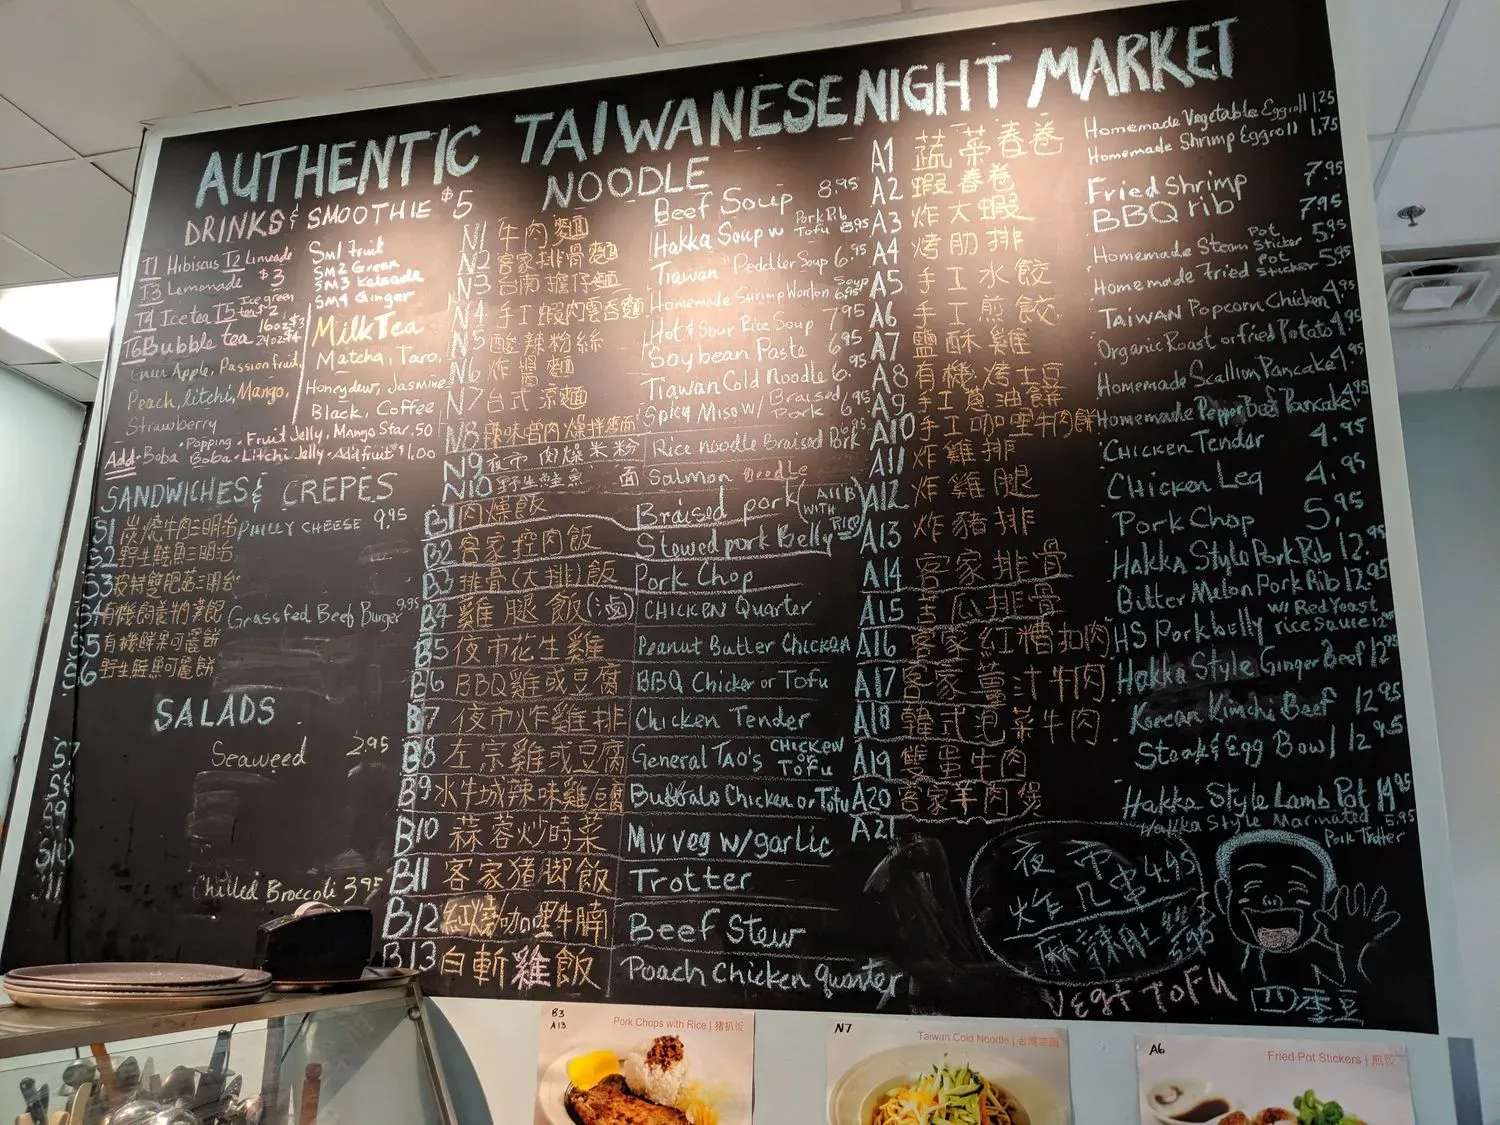 AUTHENTIC TAIWANESE NIGHT MARKET
DRINKS & SMOOTHIE $5
T1 Hibiscus T2 Limeade
$3
T3 Lemonade
T4 Ice tea T5 Ice green tea $2
T6 Bubble tea 16oz $3 24oz $4
Green Apple, Passionfruit,
Peach, litchi, Mango,
Strawberry
Sm1 Fruit
SM2 Green
SM3
SM4 Ginger
Milk Tea
Matcha, Taro,
Honeydew, Jasmine
Black, Coffee
Add • Boba • Popping Boba • Fruit Jelly, Mango Star .50
• Litchi Jelly • Add fruit $1.00
SANDWICHES & CREPES
S1 炭燒牛肉三明治 PHILLY CHEESE 9.95
S2 野生鮭魚三明治
S3
S4 Grassfed Beef Burger 9.95
S5 有機鮮果可麗餅
S6 野生鮭魚可麗餅
SALADS
S7 Seaweed 2.95
S8
S9
S10
S11 Chilled Broccoli 3.95
NOODLE
N1 牛肉麵 Beef Soup 8.95
N2 客家排骨麵 Hakka Soup w Pork Rib Tofu 8.95
N3 台南擔仔麵 Tiawan "Peddler Soup 6.95
N4 手工蝦肉雲吞麵 Homemade Shrimp Wonton Soup 6.95
N5 酸辣粉絲 Hot & Sour Rice Soup 7.95
N6 炸醬麵 Soybean Paste 6.95
N7 台式涼麵 Tiawan Cold Noodle 6.95
N8 辣味噌肉燥拌麵 Spicy Miso w/ Braised Pork 6.95
N9 夜市肉燥米粉 Rice noodle Braised Pork 6.95
N10 野生鮭魚面 Salmon noodle
B1 肉燥飯 Braised pork (All B WITH Rice)
B2 客家控肉飯 Stewed pork Belly
B3 排骨(大排)飯 Pork Chop
B4 雞腿飯(滷) CHICKEN Quarter
B5 夜市花生雞 Peanut Butter Chicken
B6 BBQ雞或豆腐 BBQ Chicken or Tofu
B7 夜市炸雞排 Chicken Tender
B8 左宗雞或豆腐 General Tao's CHICKEN or TOFU
B9 水牛城辣味雞/豆腐 Buffalo Chicken or Tofu
B10 蒜蓉炒時菜 Mix veg w/garlic
B11 客家猪脚飯 Trotter
B12 紅燒/咖哩牛腩 Beef Stew
B13 白斬雞飯 Poach Chicken quarter
A1 蔬菜春卷 Homemade Vegetable Eggroll 1.25
A2 蝦春卷 Homemade Shrimp Eggroll 1.75
A3 炸大蝦 Fried Shrimp 7.95
A4 烤肋排 BBQ rib 7.95
A5 手工水餃 Homemade Steam Pot Sticker 5.95
A6 手工煎餃 Homemade Fried Pot Sticker 5.95
A7 鹽酥雞 TAIWAN Popcorn Chicken 4.95
A8 有機烤土豆 Organic Roast or fried Potato 4.95
A9 手工蔥油餅 Homemade Scallion Pancake 4.95
A10 手工咖哩牛肉餅 Homemade Pepper Beef Pancake 4.95
A11 炸雞排 Chicken Tender 4.95
A12 炸雞腿 Chicken Leg 4.95
A13 炸豬排 Pork Chop 5.95
A14 客家排骨 Hakka Style Pork Rib 12.95
A15 苦瓜排骨 Bitter Melon Pork Rib 12.95
A16 客家紅糟扣肉 HS Porkbelly w/ Red Yeast rice sauce 12.95
A17 客家薑汁牛肉 Hakka Style Ginger Beef 12.95
A18 韓式泡菜牛肉 Korean Kimchi Beef 12.95
A19 雙蛋牛肉 Steak & Egg Bowl 12.95
A20 客家羊肉煲 Hakka Style Lamb Pot 14.95
A21 Hakka Style Marinated Pork Trotter 5.95
夜市 4.95
炸几串
麻辣肚絲 5.95
Vegi TOFU 四季豆
B3
A13
Pork Chops with Rice | 猪扒饭
N7
Taiwan Cold Noodle | 台湾凉面
A6
Fried Pot Stickers | 煎饺